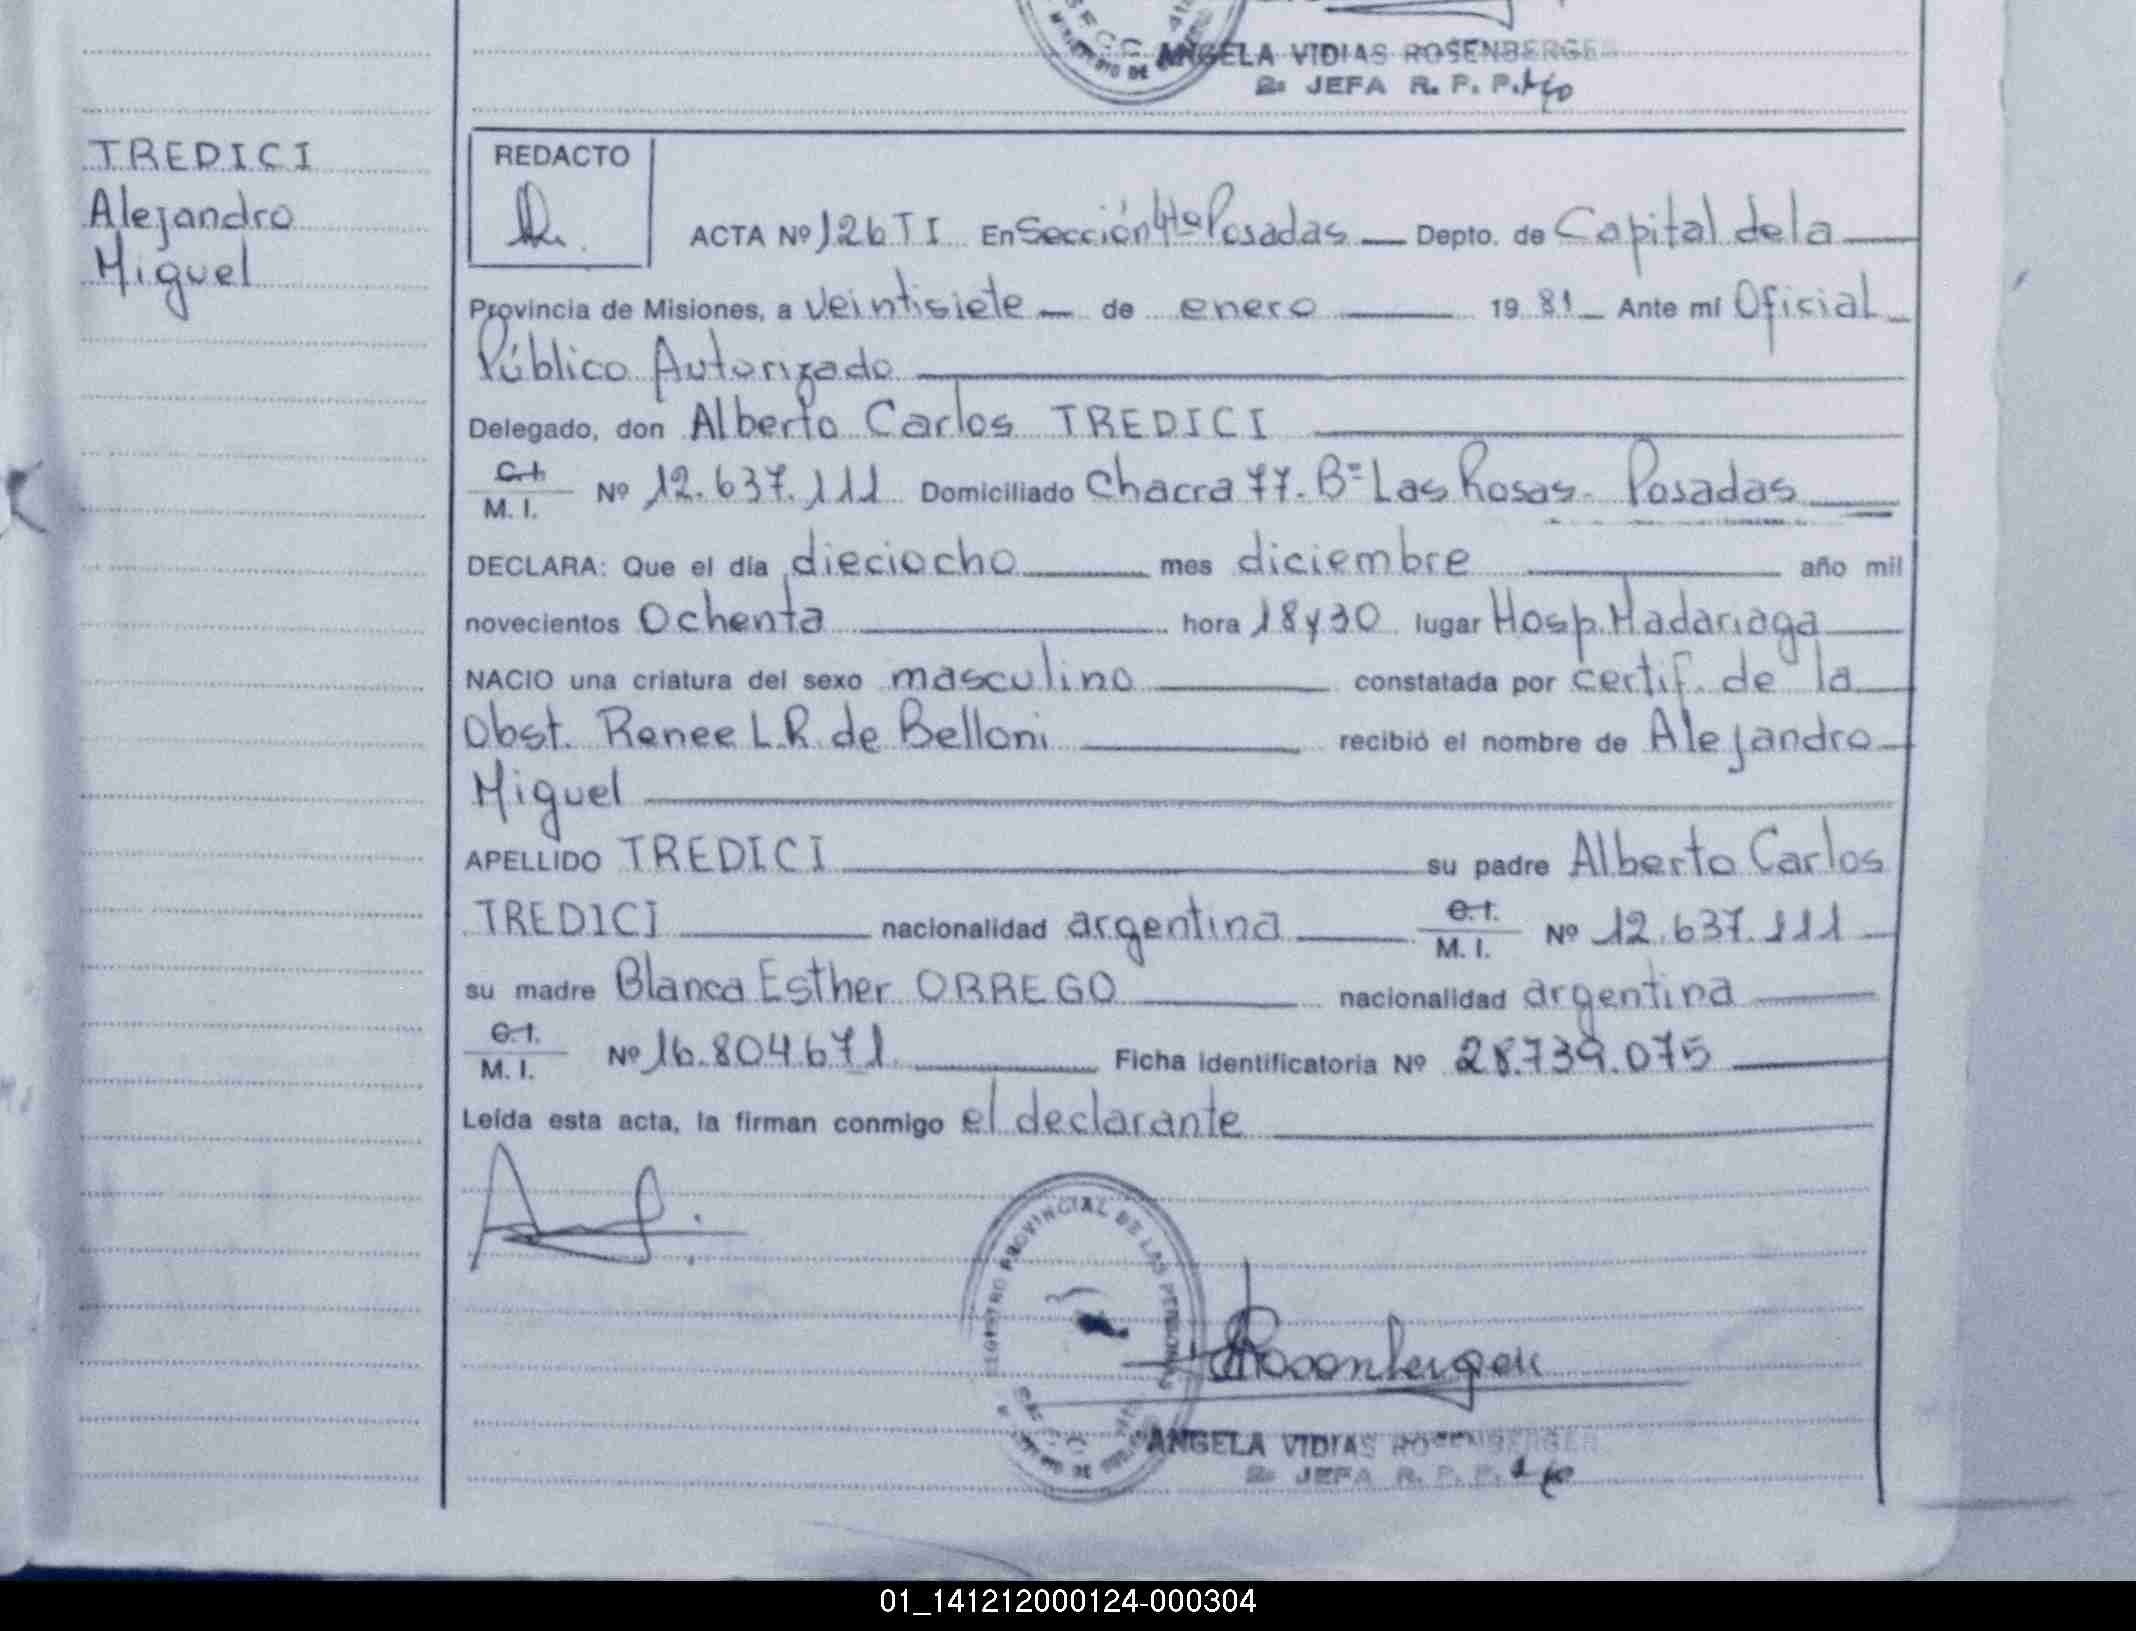 ANGELA VIDIAS ROSENBERGER
2a JEFA R. P. P.
TREDICI
Alejandro
Miguel
REDACTO
ACTA Nº 126 T I En Sección 4ta Posadas Depto. de Capital de la
Provincia de Misiones, a veintisiete de enero 19 81 Ante mí Oficial
Público Autorizado
Delegado, don Alberto Carlos TREDICI
C.I.
M. I. Nº 12.637.111 Domiciliado Chacra 77. Bº Las Rosas. Posadas
DECLARA: Que el día dieciocho mes diciembre año mil
novecientos Ochenta hora 18 y 30 lugar Hosp. Madariaga
NACIO una criatura del sexo masculino constatada por certif. de la
Obst. Renee L.R. de Belloni recibió el nombre de Alejandro
Miguel
APELLIDO TREDICI su padre Alberto Carlos
TREDICI nacionalidad argentina C.I. M. I. Nº 12.637.111
su madre Blanca Esther ORREGO nacionalidad argentina
C.I.
M. I. Nº 16.804.671 Ficha identificatoria Nº 28.739.075
Leída esta acta, la firman conmigo el declarante
REGISTRO PROVINCIAL DE LAS PERSONAS
Rosenberger
ANGELA VIDIAS ROSENBERGER
2a JEFA R. P. P.
01_141212000124-000304